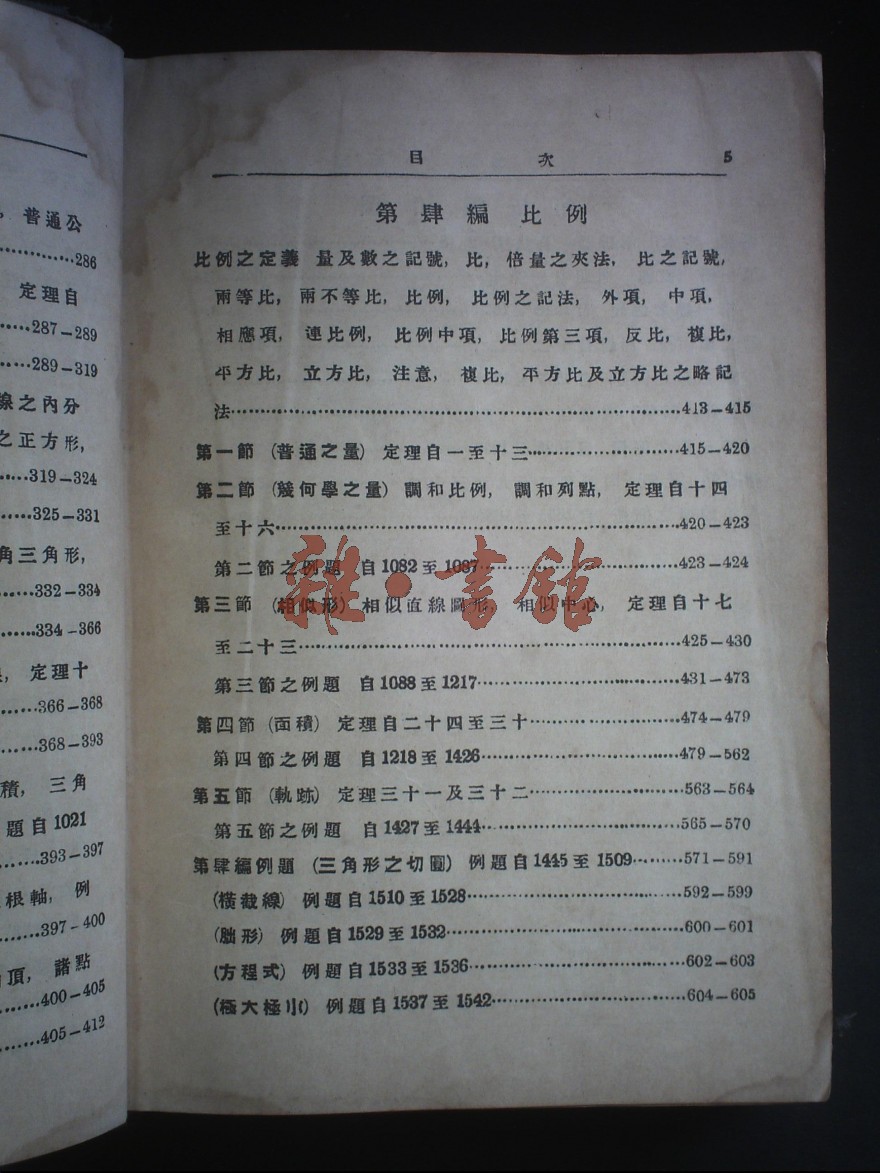 普通公
286
定理自
287-289
289-319
線之內分
之正方形,
319-324
325-331
角三角形,
332-334
334-366
定理十
366-368
368-393
積, 三角
題自1021
393-397
根軸, 例
397-400
頂, 諸點
400-405
405-412
目 次 5
第肆編 比例
比例之定義 量及數之記號, 比, 倍量之夾法, 比之記號,
兩等比, 兩不等比, 比例, 比例之記法, 外項, 中項,
相應項, 連比例, 比例中項, 比例第三項, 反比, 複比,
平方比, 立方比, 注意, 複比, 平方比及立方比之略記
法……413-415
第一節 (普通之量) 定理自一至十三……415-420
第二節 (幾何學之量) 調和比例, 調和列點, 定理自十四
至十六……420-423
第二節之例題 自1082至1087……423-424
第三節 (相似形) 相似直線圖形, 相似中心, 定理自十七
至二十三……425-430
第三節之例題 自1088至1217……431-473
第四節 (面積) 定理自二十四至三十……474-479
第四節之例題 自1218至1426……479-562
第五節 (軌跡) 定理三十一及三十二……563-564
第五節之例題 自1427至1444……565-570
第肆編例題 (三角形之切圓) 例題自1445至1509……571-591
(橫截線) 例題自1510至1528……592-599
(朏形) 例題自1529至1532……600-601
(方程式) 例題自1533至1536……602-603
(極大極小) 例題自1537至1542……604-605
雜·書館